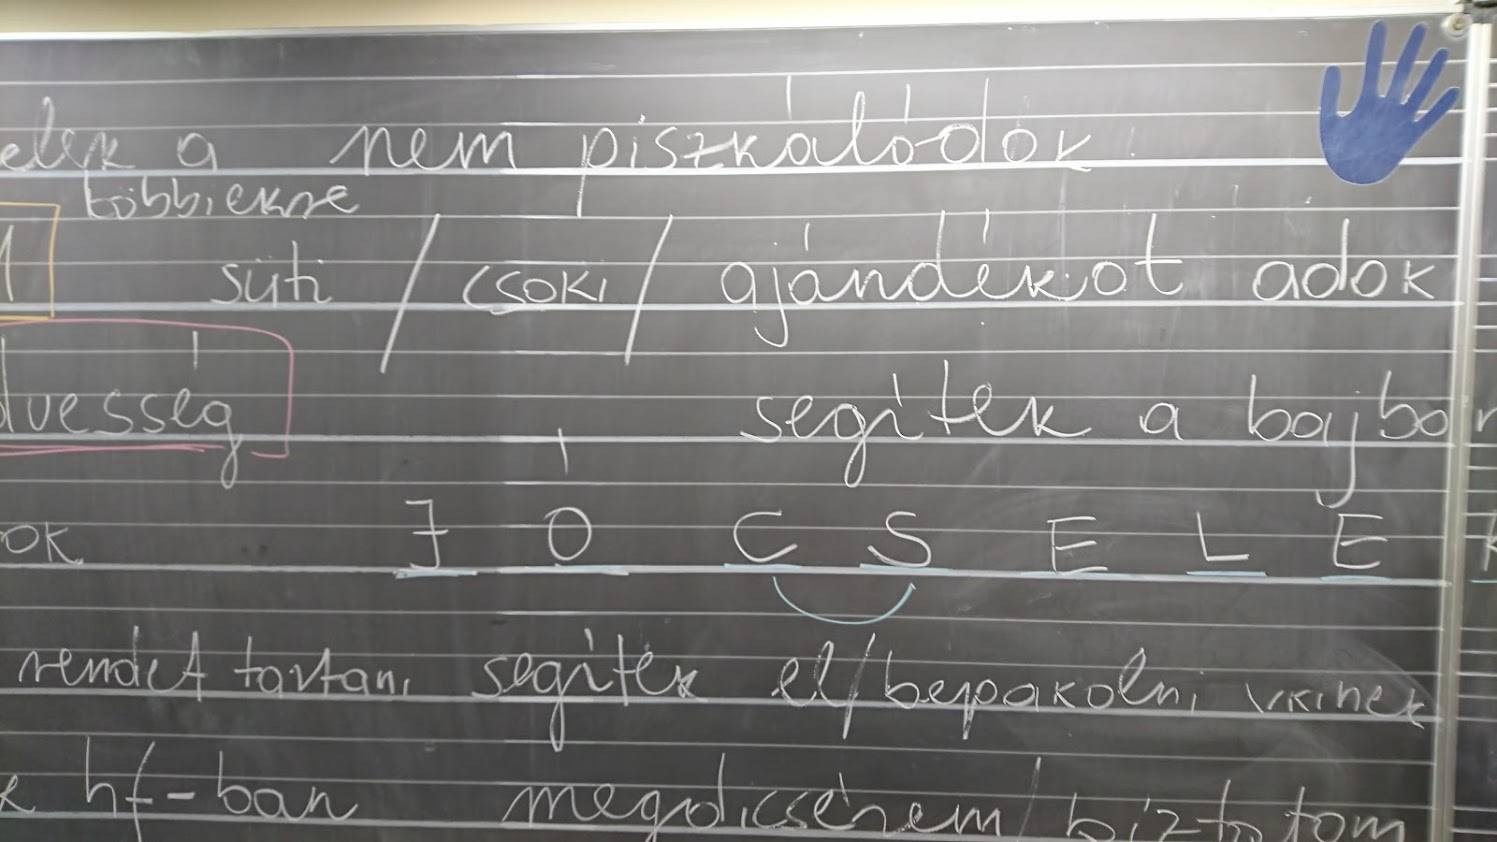 elek a nem piszkálódok
többiekne
süti / csoki / ajándékot adok
segítek a bajban
JÓ CSELEK
rendet tartani segítek el/bepakolni vkinek
hf-ban megdicsérem/ bíztatom